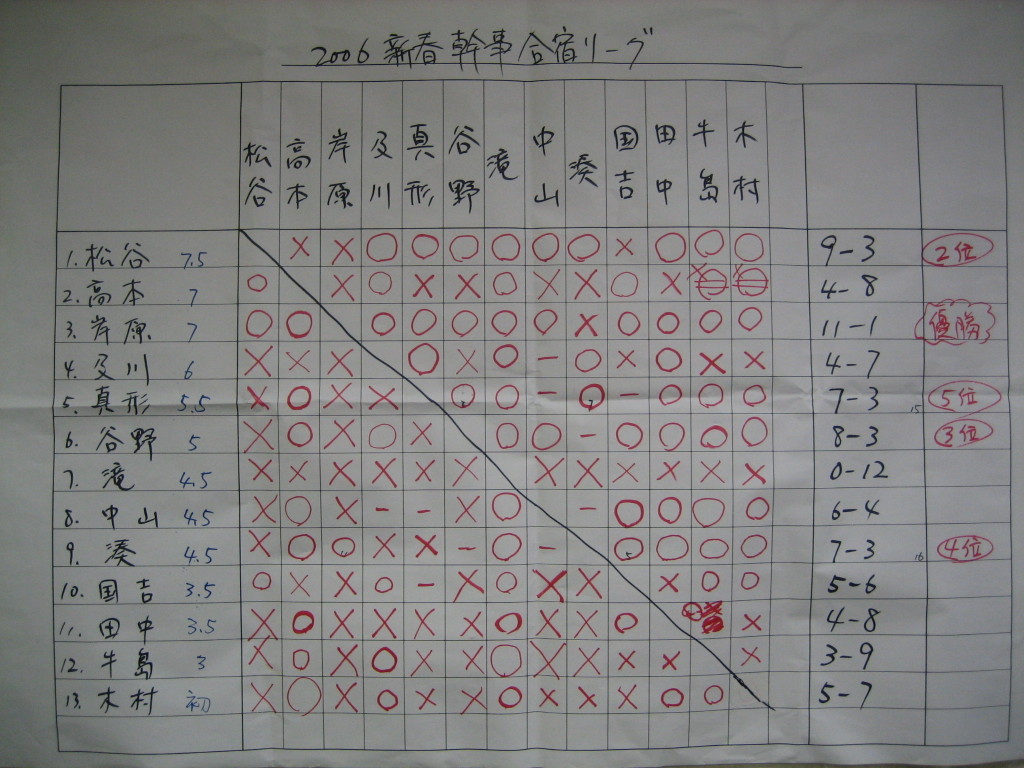 2006 新春幹事合宿リーグ
松谷 高本 岸原 及川 真形 谷野 滝 中山 湊 国吉 田中 牛島 木村
1. 松谷 7.5 × × ○ ○ ○ ○ ○ ○ × ○ ○ ○ 9-3 2位
2. 高本 7 ○ × ○ × × ○ × × ○ × × × 4-8
3. 岸原 7 ○ ○ ○ ○ ○ ○ ○ × ○ ○ ○ ○ 11-1 優勝
4. 及川 6 × × × ○ × ○ - ○ × ○ × × 4-7
5. 真形 5.5 × ○ × × ○ ○ - ○ - ○ ○ ○ 7-3 15 5位
6. 谷野 5 × ○ × ○ × ○ ○ - ○ ○ ○ ○ 8-3 3位
7. 滝 4.5 × × × × × × × × × × × × 0-12
8. 中山 4.5 × ○ × - - × ○ - ○ ○ ○ ○ 6-4
9. 湊 4.5 × ○ ○ × × - ○ - ○ ○ ○ ○ 7-3 16 4位
10. 国吉 3.5 ○ × × ○ - × ○ × × × ○ ○ 5-6
11. 田中 3.5 × ○ × × × × ○ × × ○ ○ × 4-8
12. 牛島 3 × ○ × ○ × × ○ × × × × × 3-9
13. 木村 初 × ○ × ○ × × ○ × × × ○ ○ 5-7